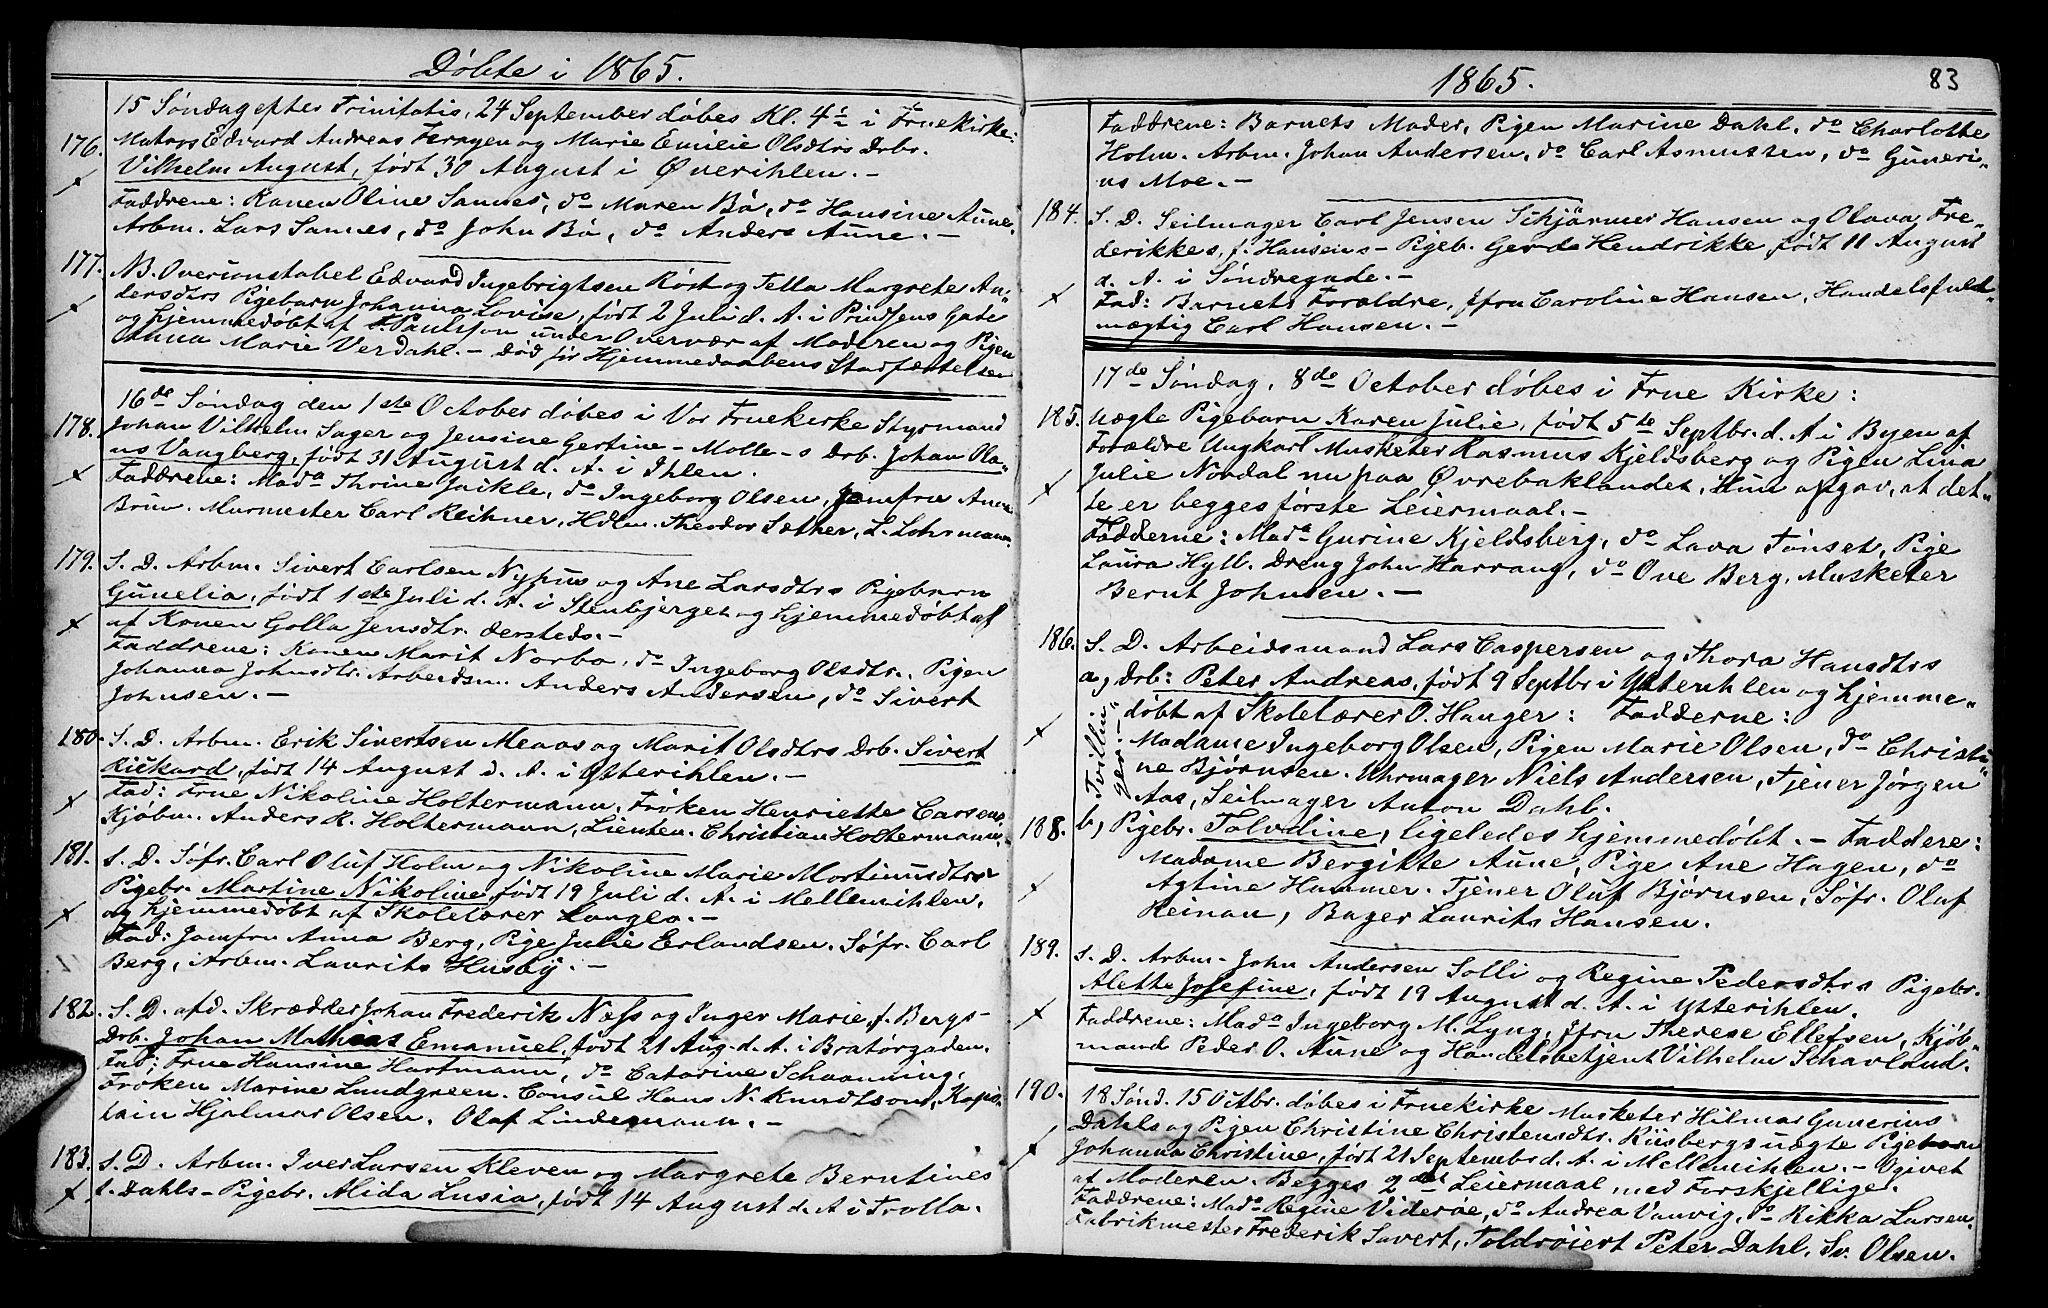 Döbte i 1865.
15 Søndag efter Trinitatis, 24 September døbes Kl. 4½ i Fruekirke:
176. Matros Edvard Andreas Ferayen og Marie Emilie Olsdtrs Drbr.
Vilhelm August, født 30 August i Øverihlen. –
Faddrene: Konen Oline Samnes, do Maren Bø, do Hansine Aune.
Arbm. Lars Samnes, do John Bø, do Anders Aune. –
177. N. Overconstabel Edvard Ingebrigtsen Röst og Tella Margrete An-
dersdtrs Pigebarn Johanna Lovise, født 2 Juli d. A. i Prindsens Gate
og hjemmedøbt af Paulson under Overvær af Moderen og Pigen
Anna Marie Verdahl. – Död før Hjemmedaabens Stadfæstelse
16de Søndag den 1ste October døbes i Vor Fruekirke Styrmand
178. Johan Vilhelm Sager og Jensine Gertine – Molle – s Drb. Johan Ola-
us Vangberg, født 31 August d. A. i Ihlen.
Faddrene: Mada Thrine Jaikle, do Ingeborg Olsen, Jomfru Anne
Brun. Murmester Carl Reihner, Hdlm. Theodor Sæther, L. Lohrmann.
179. S. D. Arbm. Sivert Carlsen Nypus og Ane Larsdtrs Pigebarn
Gunelia, født 1ste Juli d. A. i Stenbjerget og hjemmedøbt af
af Konen Golla Jensdtr. dersteds. –
Faddrene: Konen Marit Norbo, do Ingeborg Olsdtr., Pigen
Johanna Johnsdtr. Arbeidsm. Anders Andersen, do Sivert
Johnsen. –
180. S. D. Arbm. Erik Sivertsen Meaas og Marit Olsdtrs Drb. Sivert
Rickard, født 14 August d. A. i Ytterihlen. –
Fad: Frue Nikoline Holtermann, Frøken Henriette Carsens,
Kjøbm. Anders R. Holtermann, Lieuten. Christian Holtermann. –
181. S. D. Søfr. Carl Oluf Holm og Nikoline Marie Mortinusdtrs
Pigebr. Martine Nikoline, født 19 Juli d. A. i Mellemihlen,
og hjemmedøbt af Skolelærer Langlo. –
Fad: Jomfru Anna Berg, Pige Julie Erlandsen. Søfr. Carl
Berg, Arbm. Laurits Husby. –
182. S. D. afd. Skrædder Johan Frederik Næss og Inger Marie, f. Bergs –
Drb. Johan Mathias Emanuel, født 21 Aug. d. A. i Bratørgaden.
Fad: Frue Hansine Hartmann, do Catarine Schaanning,
Frøken Marine Lundgreen. Consul Hans N. Knudtson, Kapi-
tain Hjalmar Olsen. Olaf Lindemann. –
183. S. D. Arbm. Iver Larsen Kleven og Margrete Berntines
f. Dahls – Pigebr. Alida Lusia, født 14 August d. A i Trolla.
1865. 83
Faddrene: Barnets Moder, Pigen Marine Dahl, do Charlotte
Holm. Arbm. Johan Andersen, do Carl Asmussen, do Guneri-
us Moe. –
184. S. D. Seilmager Carl Jensen Schjärmer Hansen og Olava Fre-
derikkes, f. Hansens – Pigeb. Gerda Hendrikke, født 11 August
d. A. i Søndregade. –
Fad: Barnets Foraldre, Jfru Caroline Hansen, Handelsfuld-
mægtig Carl Hansen. –
17de Søndag, 8de October døbes i Frue Kirke:
185. Uægte Pigebarn Karen Julie, født 5te Septbr. d. A i Byen af
Forældre Ungkarl Musketer Rasmus Kjeldsberg og Pigen Lina
Julie Nordal nu paa Øvrebaklandet, Hun opgav, at det-
te er begges første Leiermaal. –
Fadderne: Mada Gurine Kjeldsberg, do Lava Tønset, Pige
Laura Hyll. Dreng John Harrang, do Ove Berg, Musketer
Bernt Johnsen. –
186. S. D. Arbeidsmand Lars Caspersen og Thora Hansdtrs
a, Drb: Peter Andreas, født 9 Septbr i Ytterihlen og hjemme-
døbt af Skolelærer O. Hauger: Fadderne:
Tvillin-
ger. –
Madame Ingeborg Olsen, Pigen Marie Olsen, do Christi-
ne Bjørnsen. Uhrmager Niels Andersen, Tjener Jörgen
Aas, Seilmager Anton Dahl.
188. b, Pigebr. Tolvdine, ligeledes hjemmedøbt. – Faddere:
Madame Bergitte Aune, Pige Ane Hagen, do
Agtine Hammer. Tjener Oluf Bjørnsen, Søfr. Oluf
Reinan, Bager Laurits Hansen.
189. S. D. Arbm – John Andersen Solli og Regine Pedersdtrs Pigebr.
Alette Josefine, født 19 August d. A. i Ytterihlen.
Faddrene: Mada Ingeborg M. Lyng, Jfru Therese Ellefsen, Kjøb-
mand Peder O. Aune og Handelsbetjent Vilhelm Schavland.
190. 18 Sønd. 15 Octbr. døbes i Fruekirke Musketer Hilmar Gunerius
Dahls og Pigen Christine Christensdtr. Riisbergs uægte Pigebarn
Johanna Christine, født 21 Septembr d. A. i Mellemihlen. – Ogivet
af Moderen. Begges 2det Leiermaal med Forskjellige.
Faddrene: Mada Regine Viderøe, do Andrea Vanvig, do Rikka Larsen.
Fabrikmester Frederik Savert, Toldrøiert Peter Dahl, Sv. Olsen.